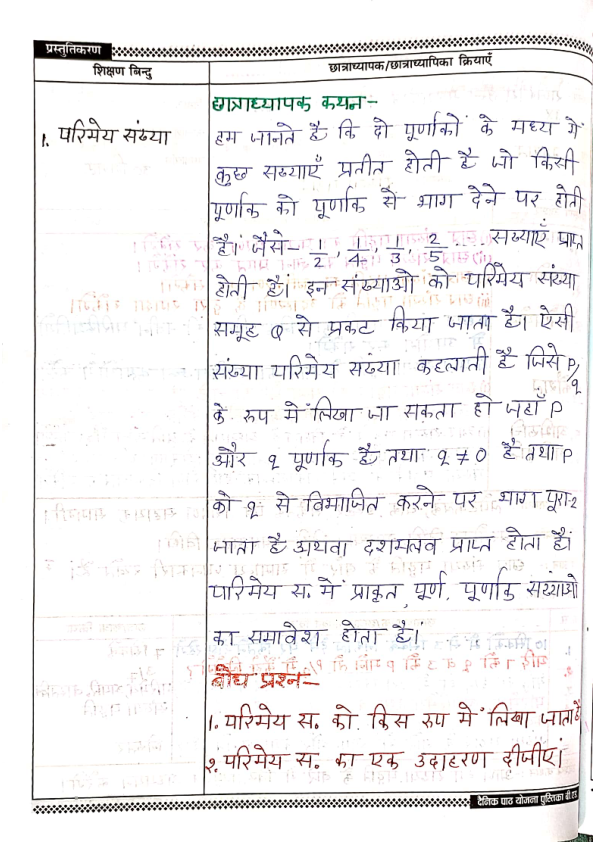 प्रस्तुतिकरण
शिक्षण बिन्दु
छात्राध्यापक/छात्राध्यापिका क्रियाएँ
छात्राध्यापक कथन -
1. परिमेय संख्या
हम जानते है कि दो पूर्णाकों के मध्य में
कुछ संख्याएँ प्रतीत होती है जो किसी
पूर्णाक को पूर्णाक से भाग देने पर होती
है। जैसे- 1/2, 1/4, 1/3, 2/5 . . . संख्याएँ प्राप्त
होती है। इन संख्याओं को परिमेय संख्या
समूह Q से प्रकट किया जाता है। ऐसी
संख्या परिमेय संख्या कहलाती है जिसे P/q
के रूप में लिखा जा सकता हो जहाँ P
और q पूर्णाक है तथा q ≠ 0 है तथा P
को q से विभाजित करने पर भाग पूरा-2
जाता है अथवा दशमलव प्राप्त होता है।
परिमेय स. में प्राकृत, पूर्ण, पूर्णाक संख्याओ
का समावेश होता है।
बोध प्रश्न-
1. परिमेय स. को किस रूप में लिखा जाता है
2. परिमेय स. का एक उदाहरण दीजीए।
दैनिक पाठ योजना पुस्तिका बी.एड.